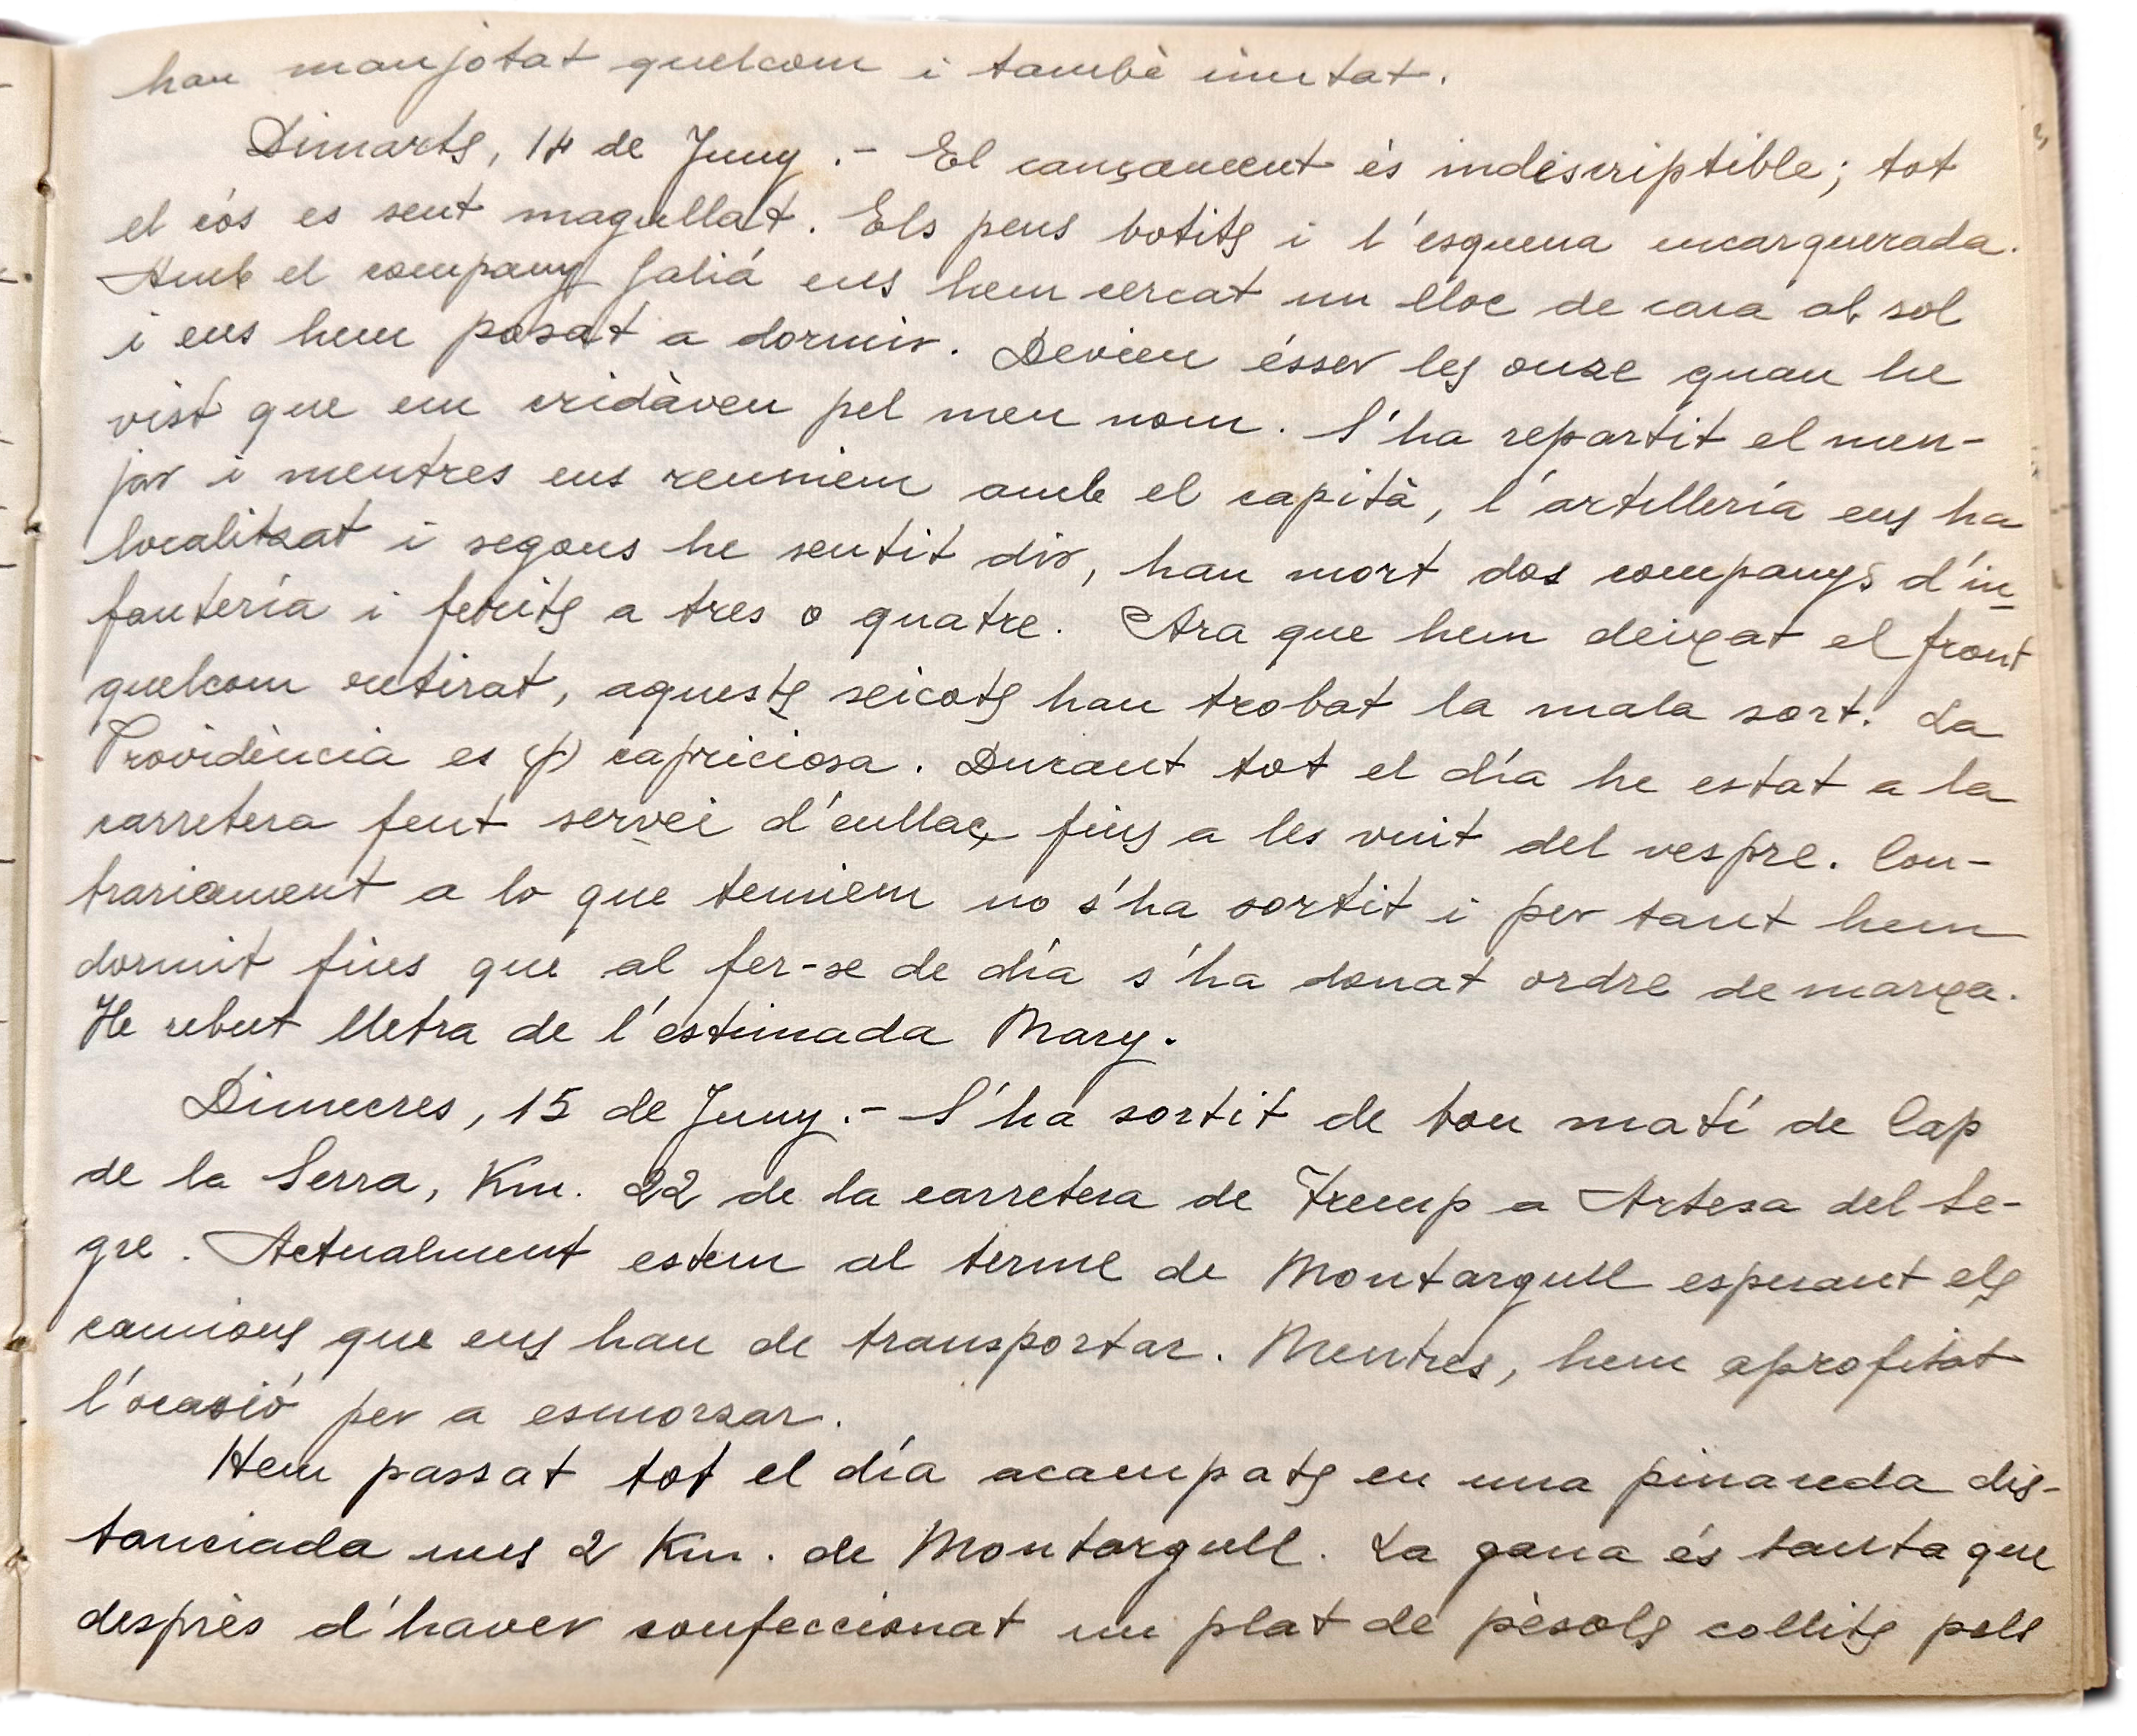 han manjotat quelcom i també
Dimarts, 14 de Juny .- El cançament és indescriptible; tot
el cós es sent magullat. Els peus botits i l'esquena encarquerada.
Amb el company Galiá ens hem cercat un lloc de cara al sol
i ens hem posat a dormir. Devien ésser les onze quan he
vist que em cridàven pel meu nom. S'ha repartit el men-
jar i mentres ens reuniem amb el capità, l'artillería ens ha
localitzat i segons he sentit dir, han mort dos companys d'in-
fantería i ferits a tres o quatre. Ara que hem deixat el front
quelcom retirat, aquests xicots han trobat la mala sort. La
Providència es (p) capriciosa. Durant tot el día he estat a la
carretera fent servei d'enllaç fins a les vuit del vespre. Con-
trariament a lo que temiem no s'ha sortit i per tant hem
dormit fins que al fer-se de día s'ha donat ordre de marxa.
He rebut lletra de l'estimada Mary.
Dimecres, 15 de Juny.- S'ha sortit de bon matí de Cap
de la Serra, Km. 22 de la carretera de Tremp a Artesa del Se-
gre. Actualment estem al terme de Montargull esperant els
camions que ens han de transportar. Mentres, hem aprofitat
l'ocasió per a esmorzar.
Hem passat tot el día acampats en una pinareda dis-
tanciada uns 2 Km. de Montargull. La gana és tanta que
desprès d'haver confeccionat un plat de pèsols collits pels